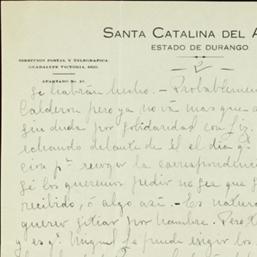 SANTA CATALINA DEL A
ESTADO DE DURANGO
DIRECCION POSTAL Y TELEGRAFICA
GUADALUPE VICTORIA, DGO.
APARTADO No. 10.
2
se habrán hecho. - Probablemen
Calderon pero ya no vá mas que a
sin duda por solidaridad con
echando delante de él el dia
cina pª recoger la correspondenci
Si los queremos pedir no sea que
recibido, ó algo así. - Es natura
querer sitiar por hambre. Pero
y es qe Miguel se puede exigir los